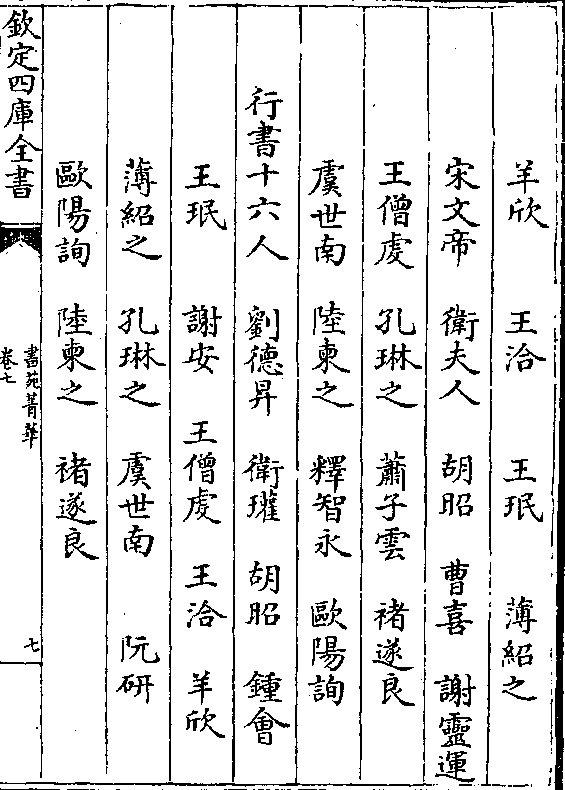 羊欣 王洽 王珉 薄紹之
宋文帝 衛夫人 胡昭 曹喜 謝靈運
王僧虔 孔琳之 蕭子雲 褚遂良
虞世南 陸柬之 釋智永 歐陽詢
行書十六人 劉德昇 衛瓘 胡昭 鍾會
王珉 謝安 王僧虔 王洽 羊欣
薄紹之 孔琳之 虞世南 阮研
歐陽詢 陸柬之 褚遂良
欽定四庫全書
書苑菁華
卷七
七